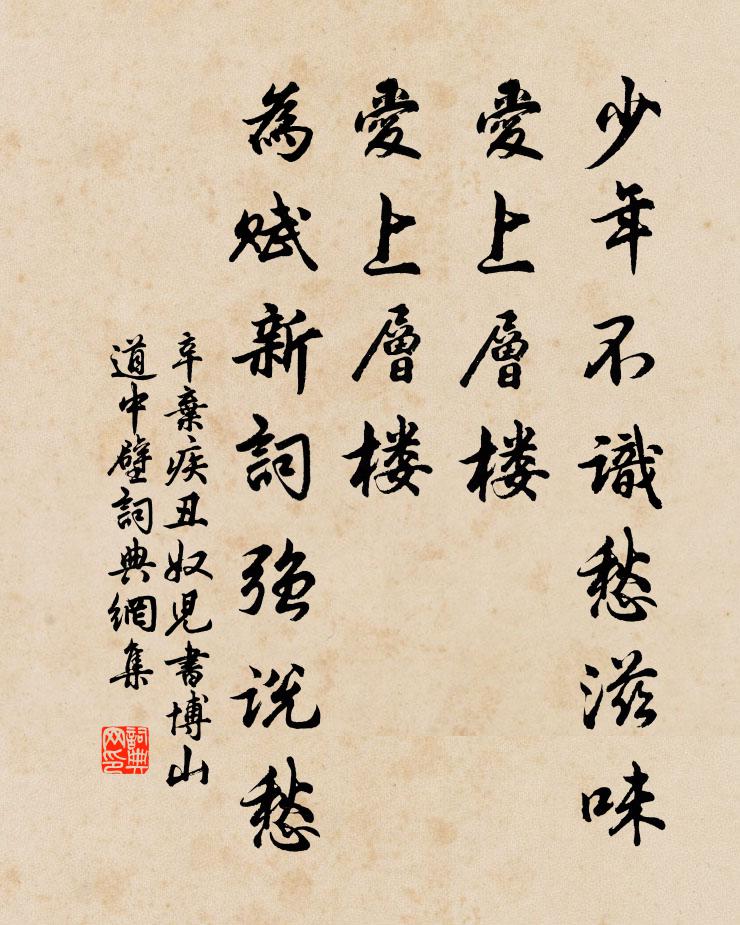 少年不識愁滋味
愛上層楼
愛上層楼
為賦新詞強说愁
辛棄疾丑奴児書博山
道中壁詞典網集
詞典
网印